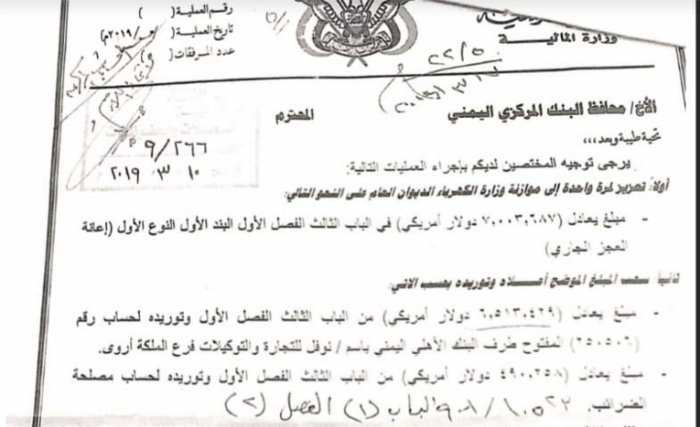 وزارة المالية
رقم العملية: (
تاريخ العملية: ( / /٢٠١٩م)
عدد المرفقات (
٢٢/٥٠
٩/٢٦٦
١٠ ٣ ٢٠١٩
الأخ/ محافظ البنك المركزي اليمني المحترم
تحية طيبة وبعد،،،
يرجى توجيه المختصين لديكم بإجراء العمليات التالية:
أولاً: تعزيز لمرة واحدة إلى موازنة وزارة الكهرباء الديوان العام على النحو التالي:
- مبلغ يعادل (٧,٠٠٣,٦٨٧ دولار أمريكي) في الباب الثالث الفصل الأول البند الأول النوع الأول (إعانة
العجز الجاري)
ثانياً: سحب المبلغ الموضح أعلاه وتوريده بحسب الاتي:
- مبلغ يعادل (٦,٥١٣,٤٢٩ دولار أمريكي) من الباب الثالث الفصل الأول وتوريده لحساب رقم
(٢٥٠٥٠٦) المفتوح طرف البنك الأهلي اليمني باسم / نوفل للتجارة والتوكيلات فرع الملكة أروى.
- مبلغ يعادل (٤٩٠,٢٥٨ دولار أمريكي) من الباب الثالث الفصل الأول وتوريده لحساب مصلحة
الضرائب. الباب (١) الفصل (٢)